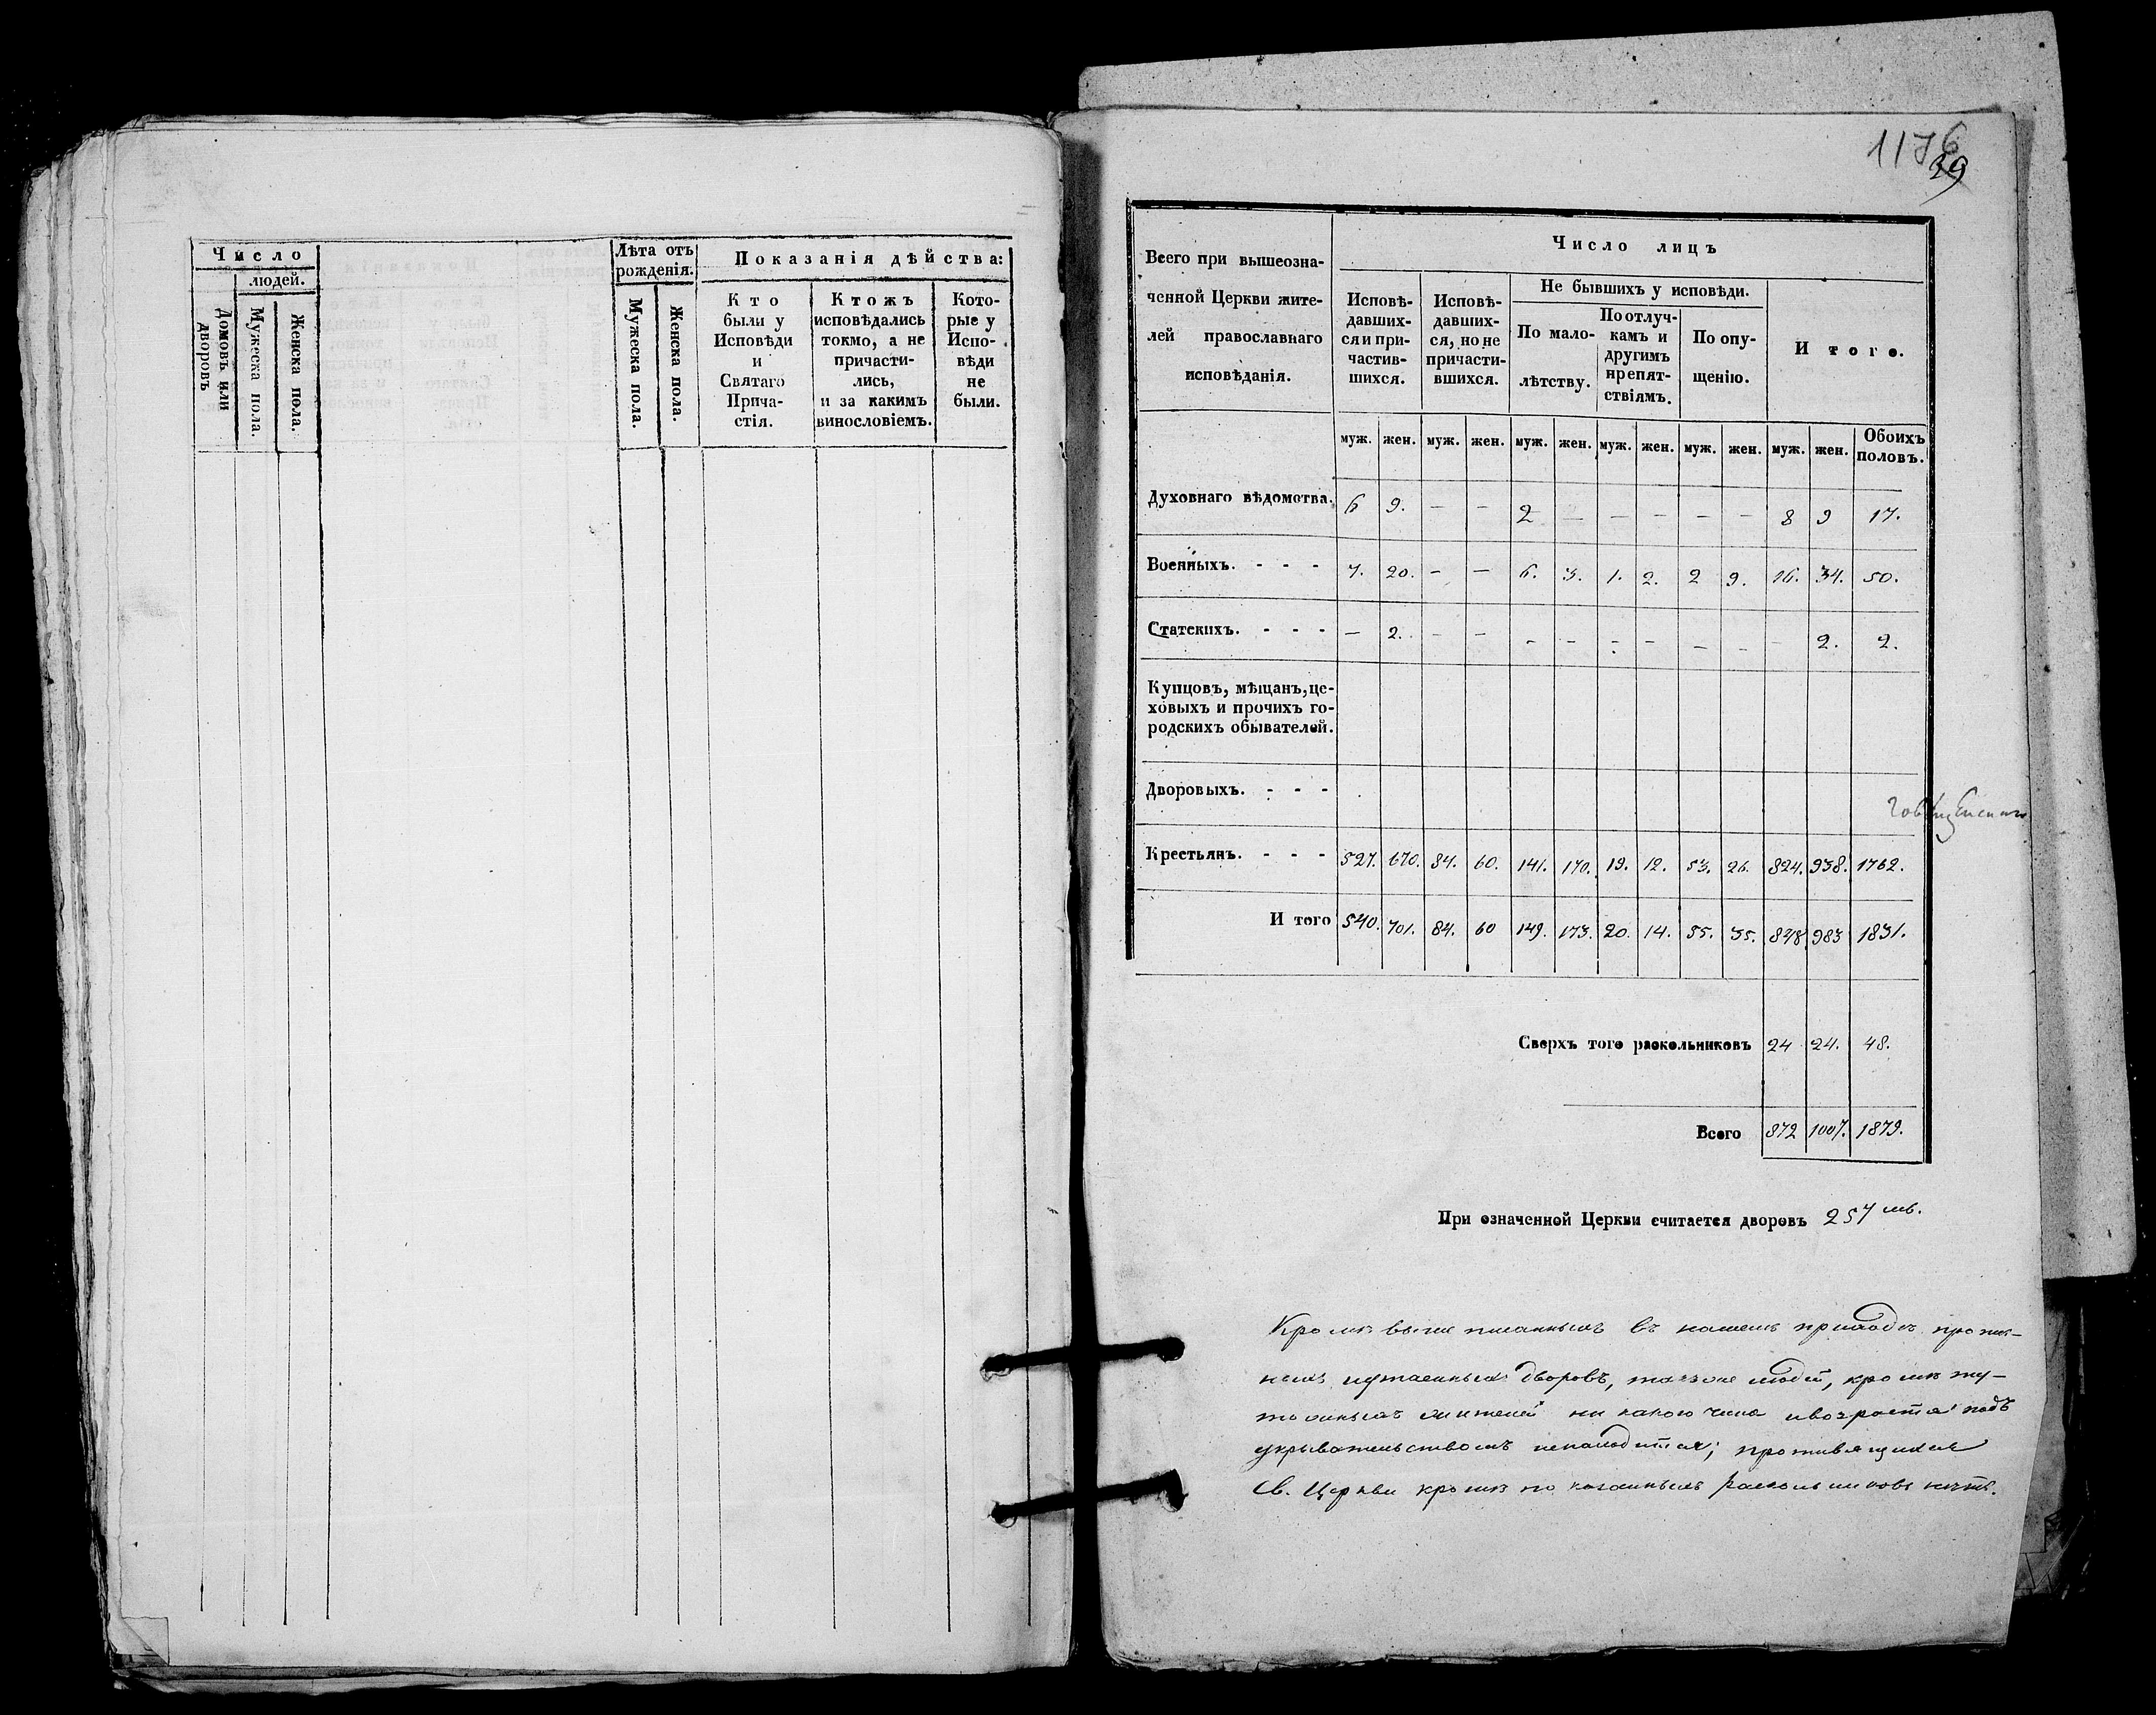 Число
людей.
Домовъ или дворовъ
Мужеска пола.
Женска пола.
Лѣта отъ рожденія.
Мужеска пола.
Женска пола.
Показанія дѣйства:
Кто
были у
Исповѣди
и
Святаго
Прича-
стія.
Ктожъ
исповѣдались
токмо, а не
причасти-
лись,
и за какимъ
винословіемъ.
Кото-
рые у
Испо-
вѣди
не
были.
1176
39
Всего при вышеозна-
ченной Церкви жите-
лей православнаго
исповѣданія.
Число лицъ
Исповѣ-
давших-
ся и при-
частив-
шихся.
Исповѣ-
давших-
ся, но не
причасти-
вшихся.
Не бывшихъ у исповѣди.
По мало-
лѣтству.
По отлуч-
камъ и
другимъ
препят-
ствіямъ.
По опу-
щенію.
И того.
муж. жен. муж. жен. муж. жен. муж. жен. муж. жен. муж. жен. Обоихъ половъ.
Духовнаго вѣдомства. 6 9. — — 2 — — — — — 8 9 17.
Военныхъ. - - - 7. 20. — — 6. 3. 1. 2. 2 9. 16. 34. 50.
Статскихъ. - - - — 2. — — — — — — — — — 2. 2.
Купцовъ, мѣщанъ, це-
ховыхъ и прочихъ го-
родскихъ обывателей.
Дворовыхъ. - - -
Крестьянъ. - - - 527. 670. 84. 60. 141. 170. 19. 12. 53. 26. 824. 938. 1762.
И того 540. 701. 84. 60 149. 173. 20. 14. 55. 35. 848 983 1831.
Сверхъ того раскольниковъ 24 24. 48.
Всего 872 1007. 1879.
При означенной Церкви считается дворовъ 257
Кромѣ выше писанныхъ въ нашемъ приходѣ
дворовъ, также людей, кромѣ
жителей ни какого чина и возраста подъ
укрывательствомъ ненаходится; противящихся
Св. Церкви кромѣ показанныхъ раскольниковъ нѣтъ.